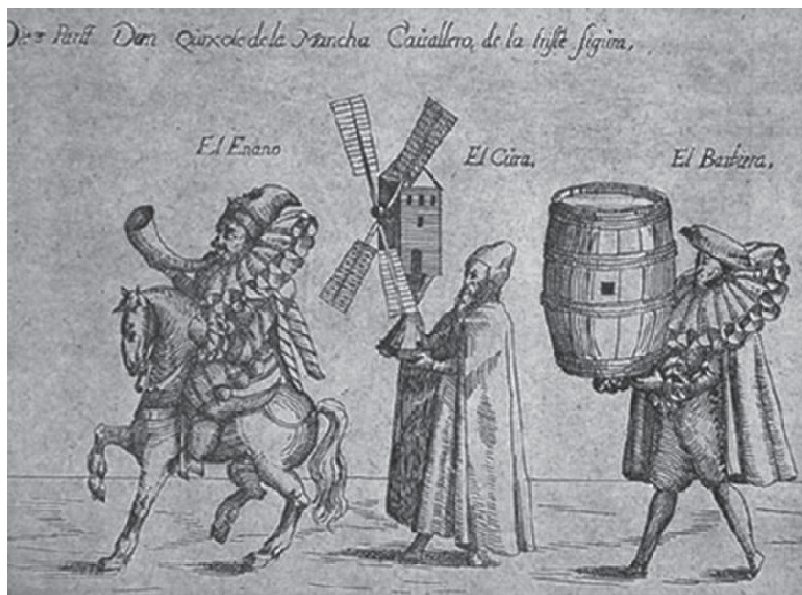 Dom Quixote de la Mancha Cauallero, de la triste figura,
El Enano
El Cura,
El Barbero,